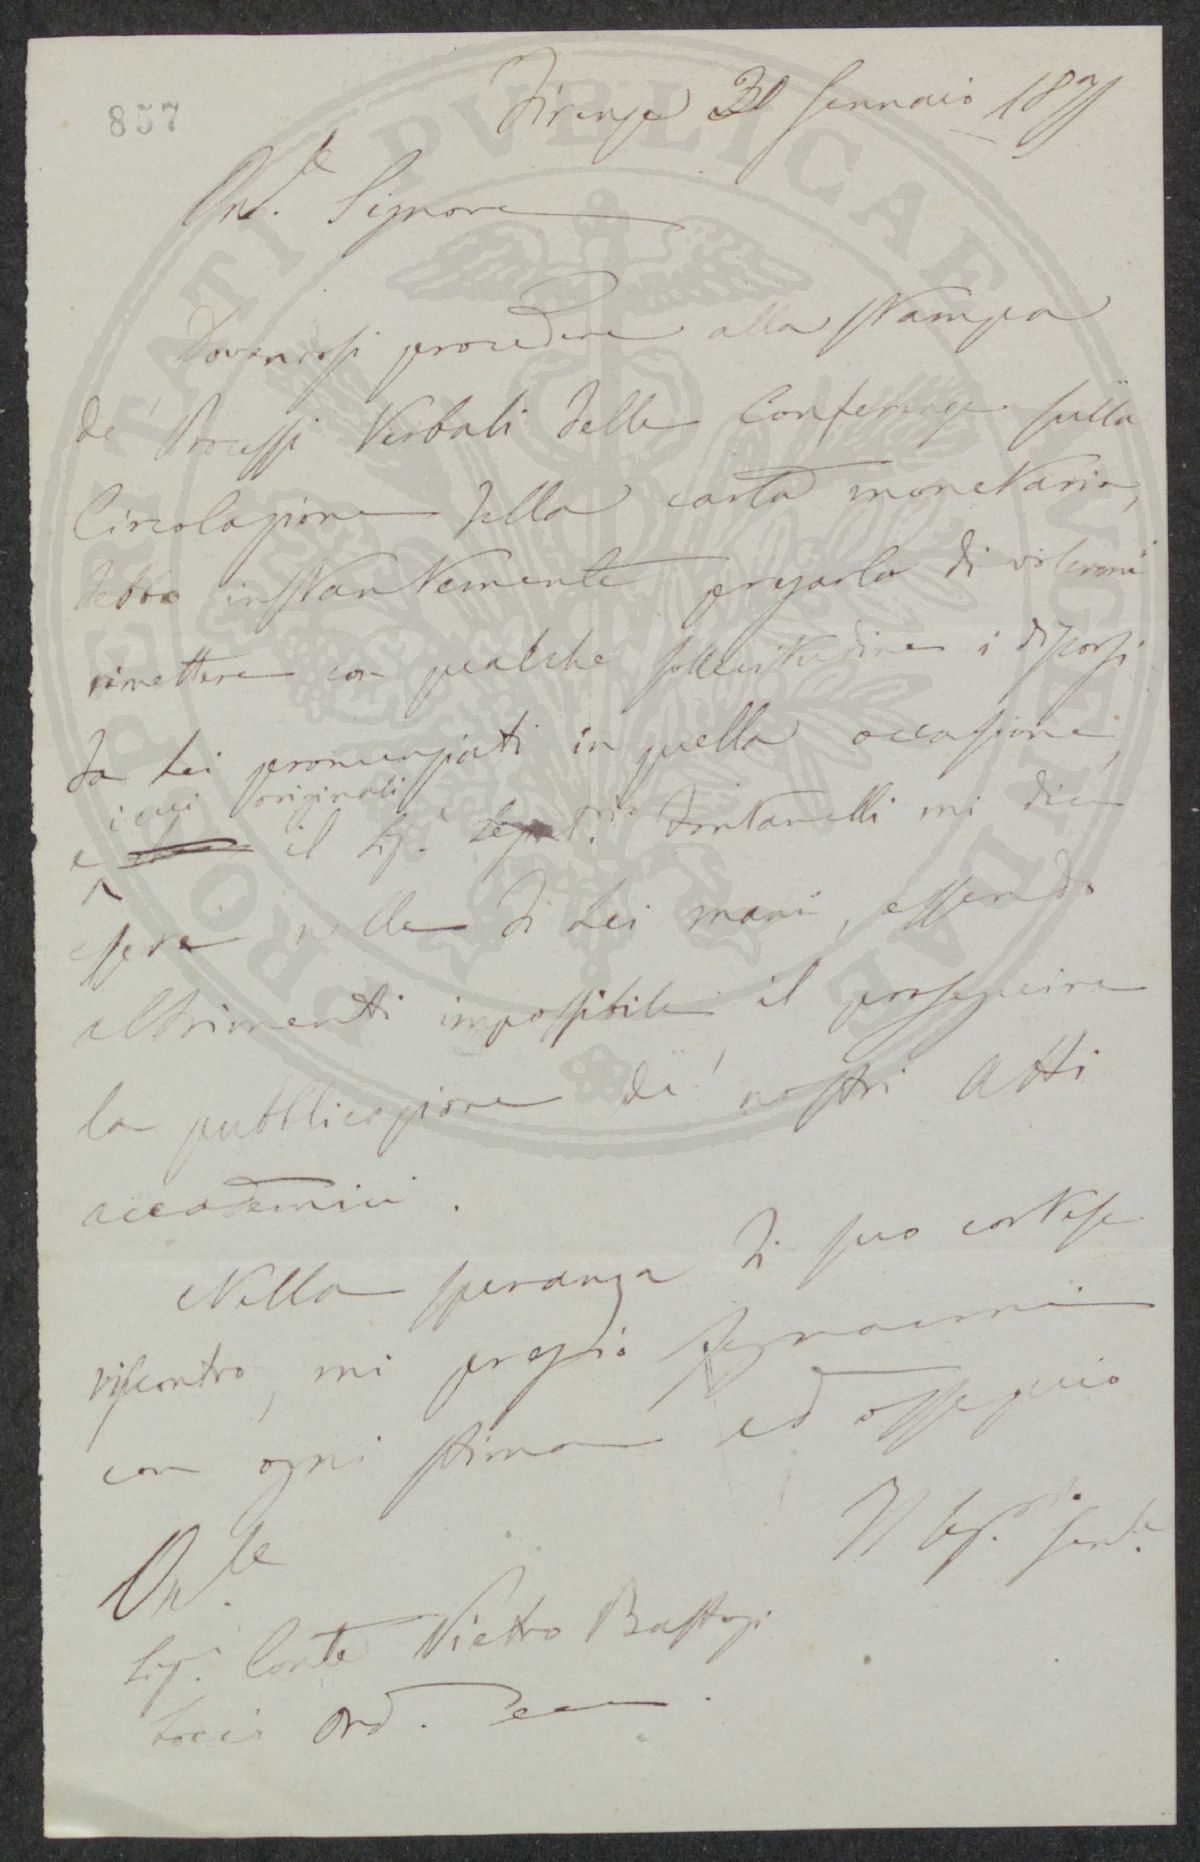 857
Firenze 31 Gennaio 1871
On.le Signore
Dovendosi procedere alla stampa
de' Processi Verbali delle Conferenze sulla
Circolazione della carta monetaria,
debbo instantemente pregarla di volermi
rimettere con qualche sollecitudine i discorsi
da Lei pronunziati in quella occasione,
i cui originali
e il Sig. Segret.rio Fontanelli mi dice
essere nelle di Lei mani, essendo
altrimenti impossibile il proseguire
la pubblicazione de' nostri Atti
accademici.
Nella speranza di suo cortese
riscontro, mi pregio segnarmi
con ogni stima ed ossequio
Il Seg.rio Gen.le
On.le
Sig. Conte Pietro Bastogi
Socio Ord.
PROSPERITATI PVBLICAE AVGENDAE